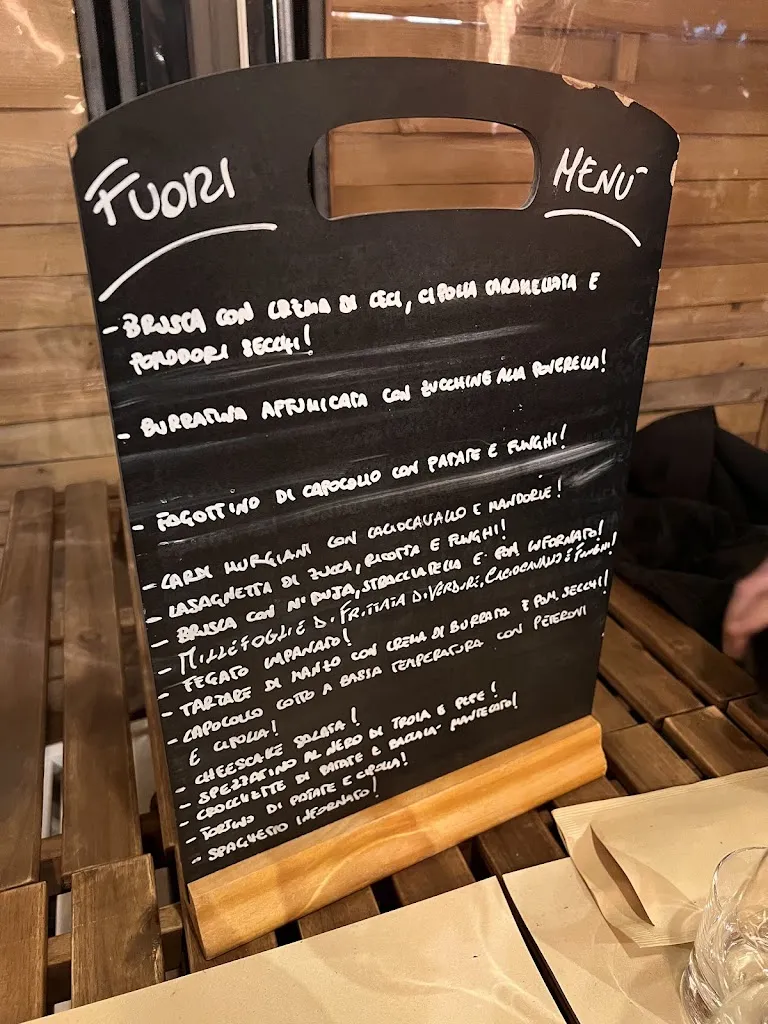 FUORI MENÙ
- BRUSCA CON CREMA DI CECI, CIPOLLA CARAMELLATA E
POMODORI SECCHI!
- BURRATINA AFFUMICATA CON ZUCCHINE ALLA POVERELLA!
- FAGOTTINO DI CAPOCOLLO CON PATATE E FUNGHI!
- CARDI MURGIANI CON CACIOCAVALLO E MANDORLE!
- LASAGNETTA DI ZUCCA, RICOTTA E FUNGHI!
- BRUSCA CON N'DUJA, STRACCIATELLA E POM INFORNATO!
- MILLEFOGLIE DI FRITTATA DI VERDURE, CACIOCAVALLO E FUNGHI!
- FEGATO IMPANATO!
- TARTARE DI MANZO CON CREMA DI BURRATA E POM. SECCHI!
- CAPOCOLLO COTTO A BASSA TEMPERATURA CON PETERONI
E CIPOLLA!
- CHEESCAKE SALATA!
- SPEZZATINO AL NERO DI TROIA E PEPE!
- CROCCHETTE DI PATATE E BACCALÀ MANTECATO!
- TORTINO DI PATATE E CIPOLLA!
- SPAGHETTO INFORNATO!